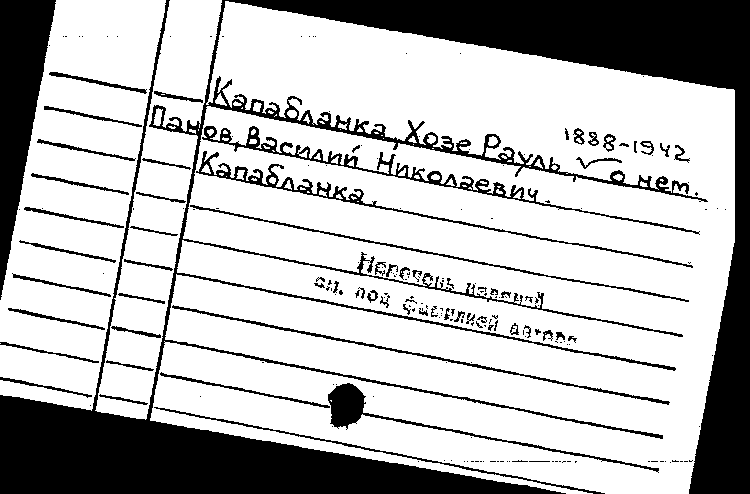 Капабланка, Хозе Рауль, 1888-1942
о нем.
Панов, Василий Николаевич.
Капабланка.
Перечень изданий
см. под фамилией автора